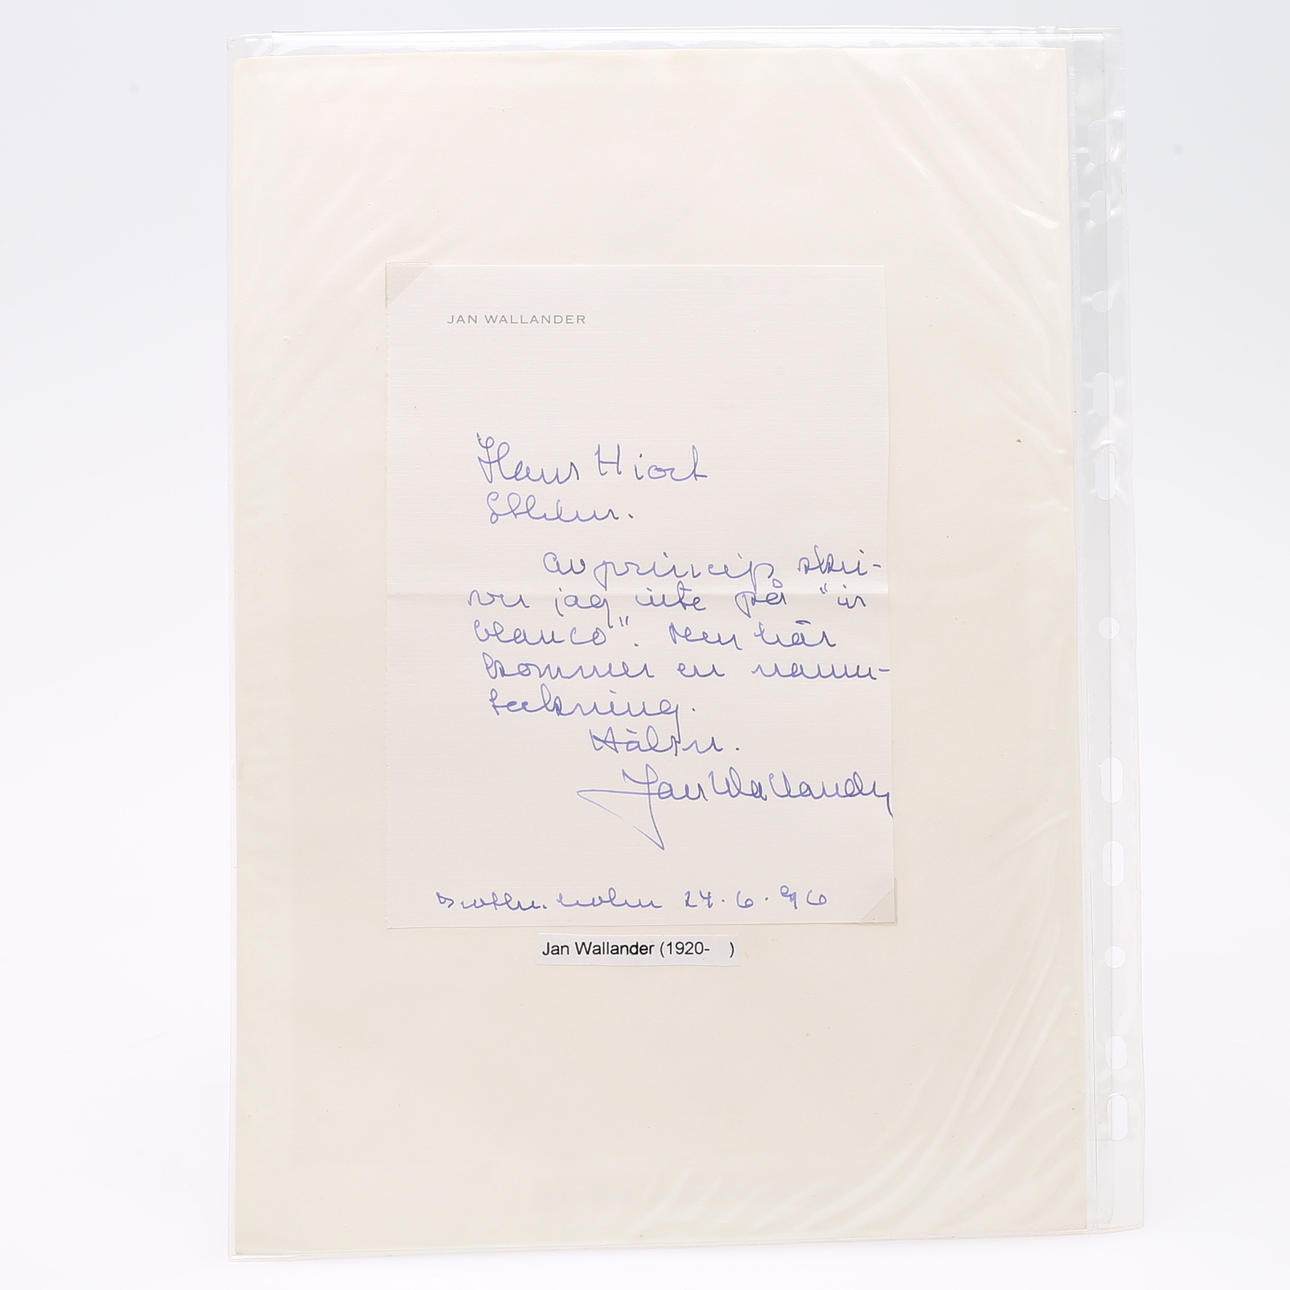 JAN WALLANDER
Hans Hiort
av princip skri-
ver jag inte på "in
blanco". Men här
kommer en namn-
teckning.
Hälsn.
Jan Wallander
24.6.96
Jan Wallander (1920- )